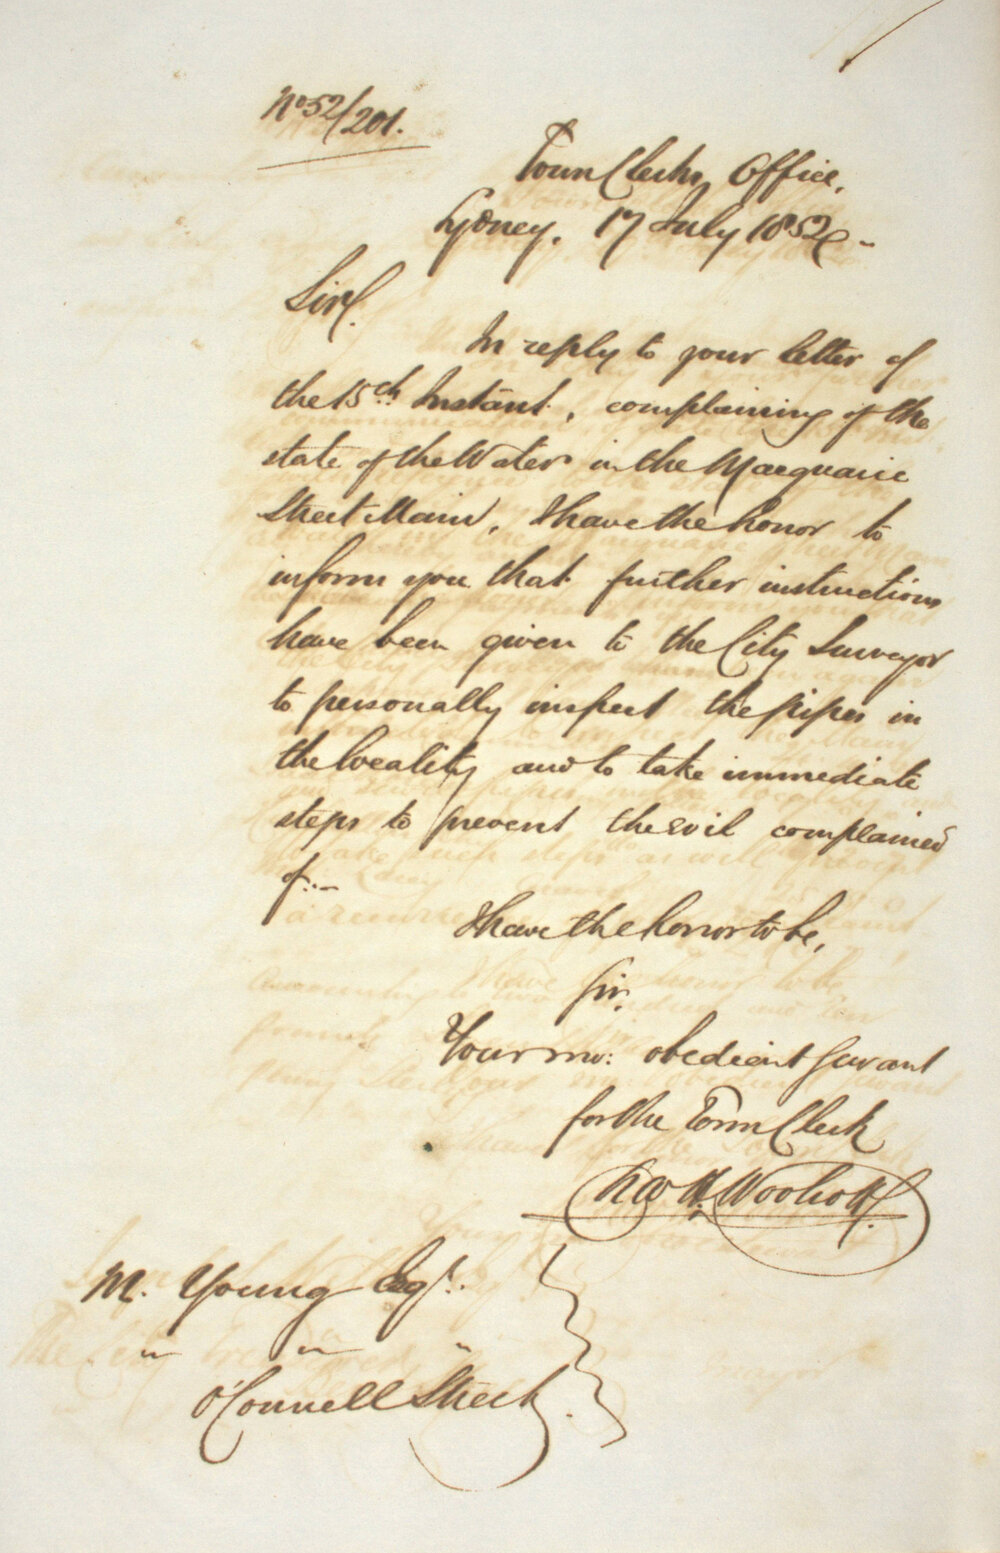 No 52/201.
Town Clerks Office,
Sydney, 17 July 1852
Sir,
In reply to your letter of
the 15th Instant, complaining of the
state of the Water in the Macquarie
Street Main, I have the honor to
inform you that further instructions
have been given to the City Surveyor
to personally inspect the pipes in
the locality and to take immediate
steps to prevent the evil complained
of.
I have the honor to be,
Sir,
Your mo: obedient Servant
for the Town Clerk
Woolcott
M. Young Esqr.
" " "
O'Connell Street